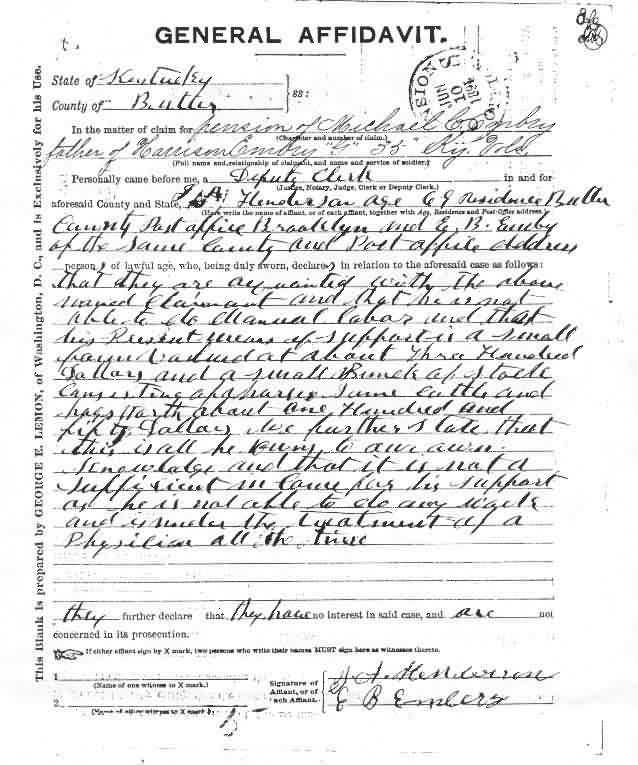 GENERAL AFFIDAVIT.
State of Kentucky
County of Butler
ss:
In the matter of claim for pension of Michael Embry
(Character and number of claim.)
father of Harrison Embry "G" 35" Ky. Vold
(Full name and relationship of claimant, and name and service of soldier.)
Personally came before me, a Deputy Clerk in and for
(Justice, Notary, Judge, Clerk or Deputy Clerk.)
aforesaid County and State, Henderson age Residence Butler
(Here write the name of affiant, or of each affiant, together with Age, Residence and Post-Office address.)
County Post office Brooklyn and E. B. Emby
of the same County and Post office address
person s of lawful age, who, being duly sworn, declare in relation to the aforesaid case as follows:
that they are aquainted with the above
named claimant and that he is not
able to do Manual labor and that
his Present means of support is a small
farm valued at about Three Hundred
Dollars and a small Bunch of stock
Consisting of horses some cattle and
hogs worth about one Hundred and
fifty Dollars we further state that
this is all he owns to our own
Knowledge and that it is not a
sufficient in come for his support
as he is not able to do any work
and is under the treatment of a
Physician all the time
they further declare that they have no interest in said case, and are not
concerned in its prosecution.
If either affiant sign by X mark, two persons who write their names MUST sign here as witnesses thereto.
1
(Name of one witness to X mark.)
2
(Name of other witness to X mark.)
Signature of
Affiant, or of
each Affiant.
J A Henderson
E B Embery
This Blank is prepared by GEORGE E. LEMON, of Washington, D. C., and is Exclusively for his Use.